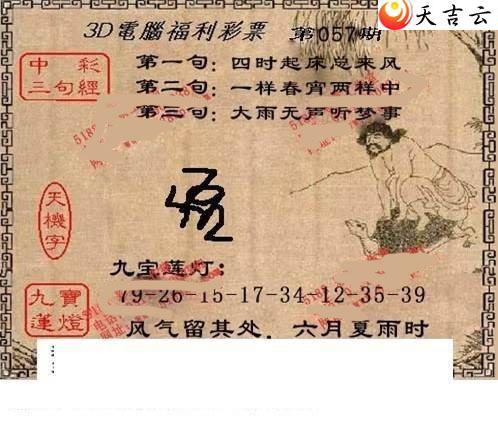 天吉云
3D電腦福利彩票 第057期
中彩
三句經
第一句：四时起床总来风
第二句：一样春宵两样中
第三句：大雨无声听梦事
天機字
九宝莲灯：
九寶蓮燈
79-26-15-17-34-12-35-39
风气留其处，六月夏雨时